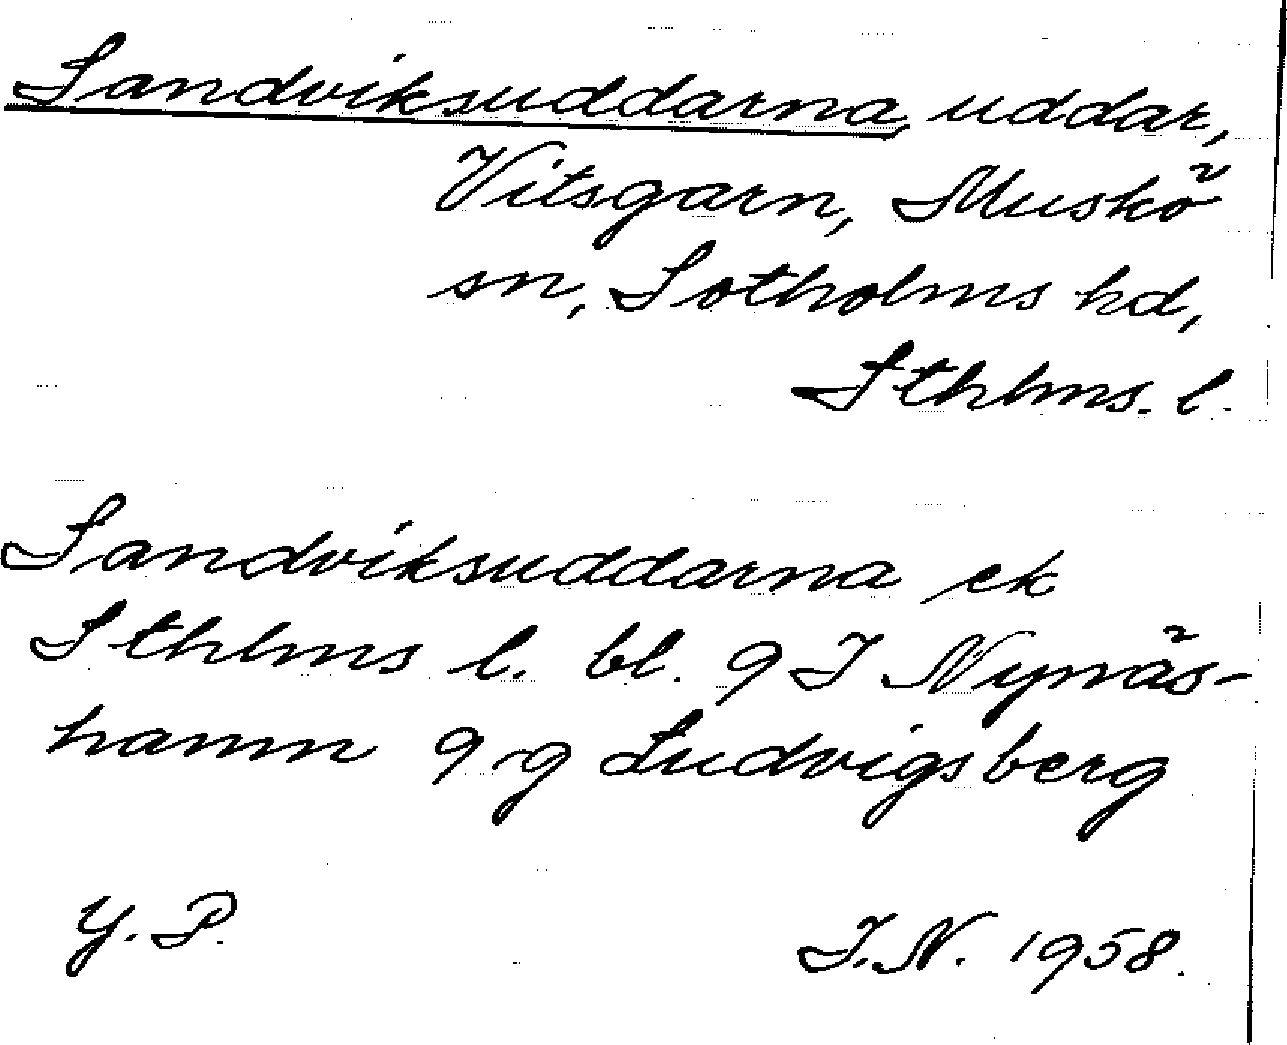 Sandviksuddarna, uddar,
Vitsgarn, Muskö
sn, Sotholms hd,
Sthlms. l.
Sandviksuddarna ek
Sthlms l. bl. 9 I Nynäs-
hamn 9 g Ludvigsberg
Y. P. I.N. 1958.